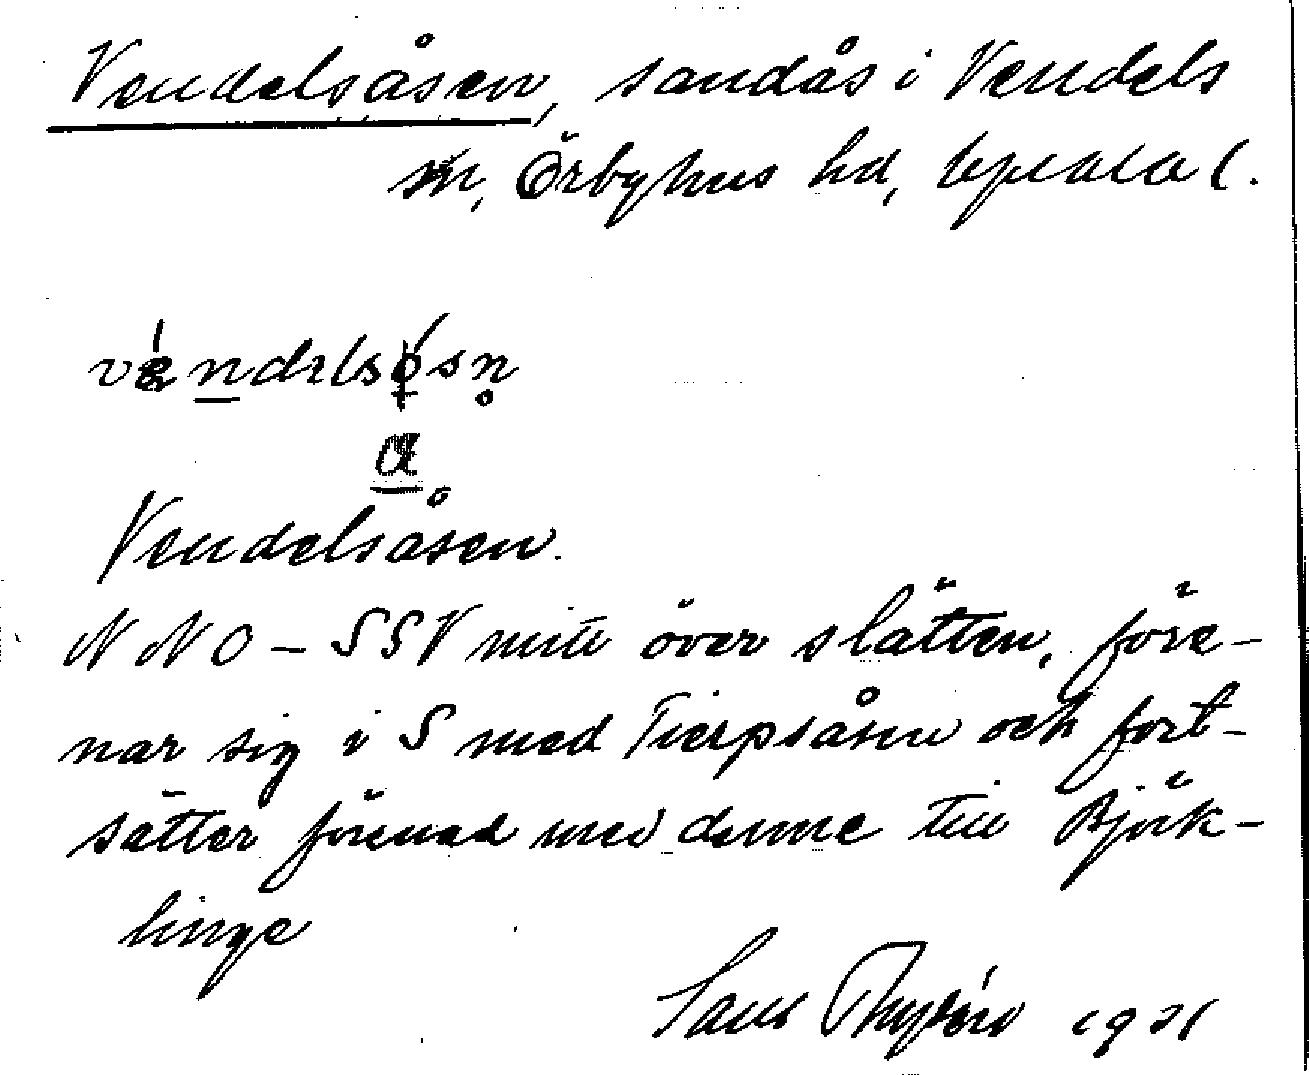 Vendelsåsen, sandås i Vendels
sn, Örbyhus hd, Upsala l.
Vendelsåsen.
NNO – SSV mitt över slätten, före-
nar sig i S med Tierpsåsen och fort-
sätter förenad med denne till Björk-
linge
1921